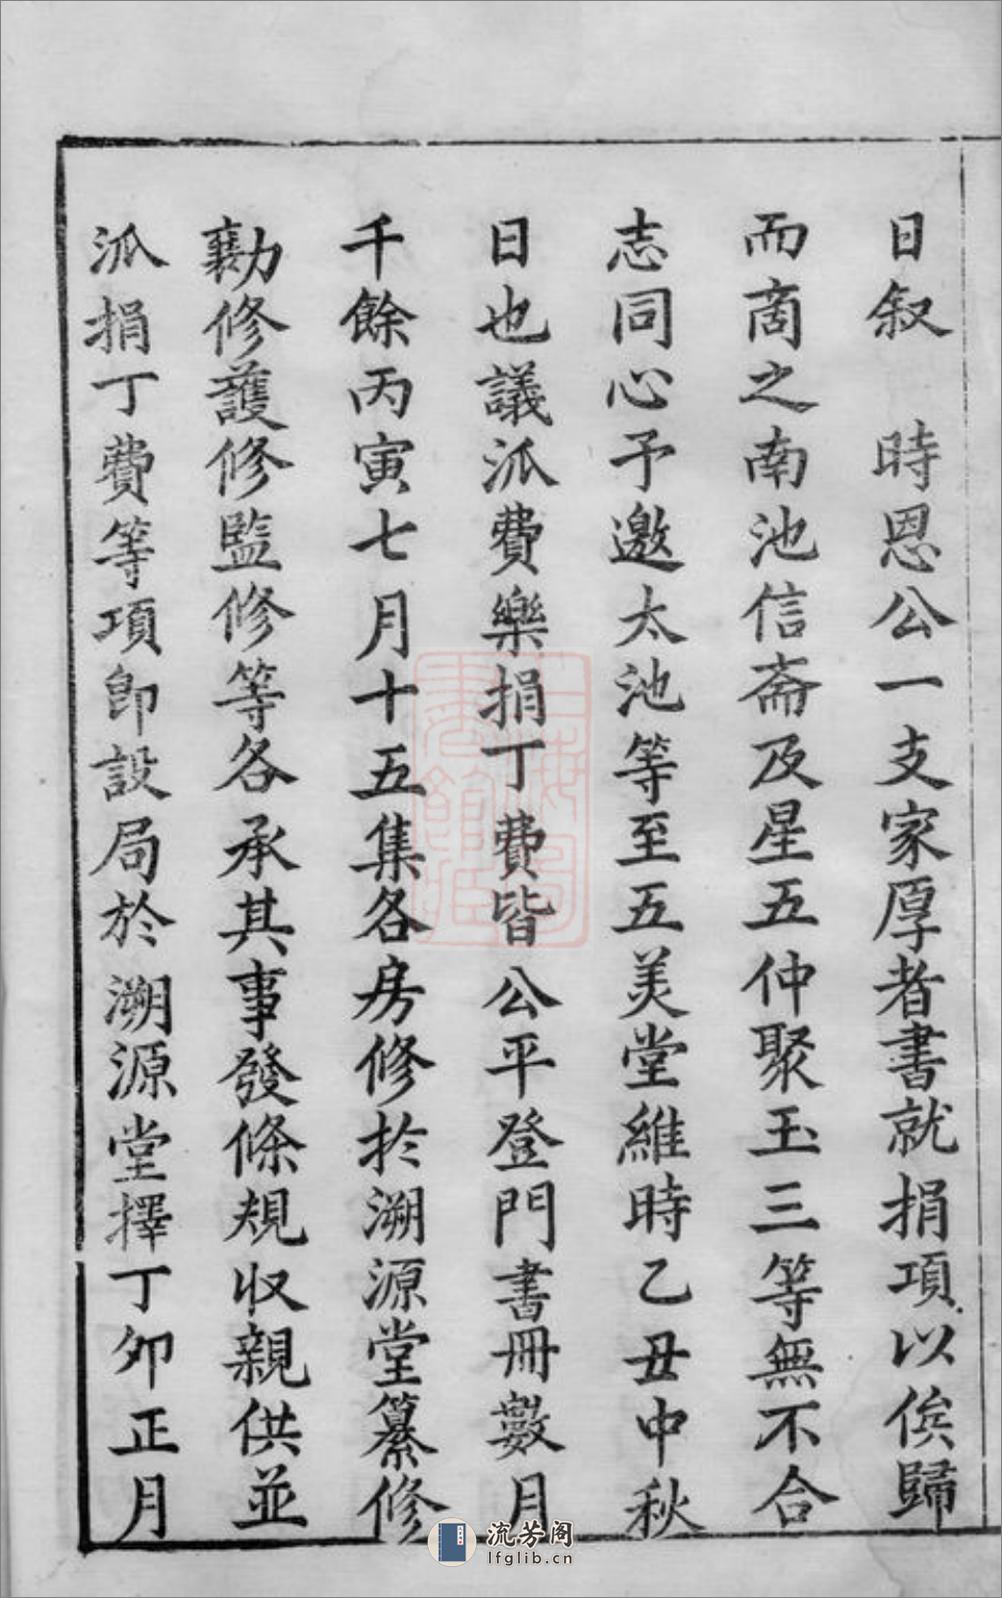 日叙　時恩公一支家厚者書就捐項以俟歸
而商之南池信斋及星五仲聚玉三等無不合
志同心予邀太池等至五美堂維時乙丑中秋
日也議派費樂捐丁費皆公平登門書冊數月
千餘丙寅七月十五集各房修於溯源堂纂修
勷修護修監修等各承其事發條規収親供並
派捐丁費等項即設局於溯源堂擇丁卯正月
流芳阁
lfglib.cn